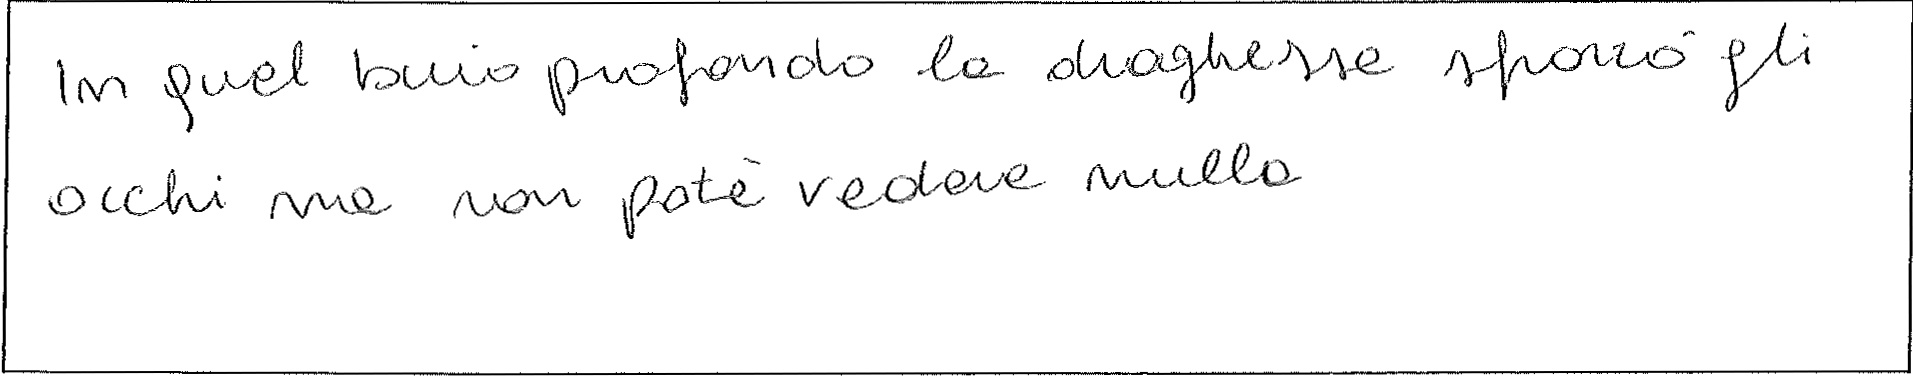 In quel buio profondo la draghessa sporzò gli
occhi ma non potè vedere nulla